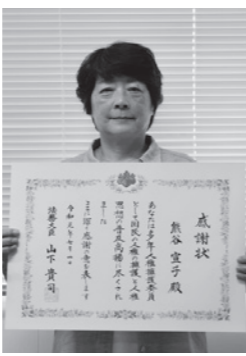 感謝状
熊谷宣子殿
あなたは多年人権擁護委員
として国民の人権の擁護と人権
思想の普及高揚に尽くされ
ました
ここに深く感謝の意を表します
令和元年
法務大臣 山下貴司